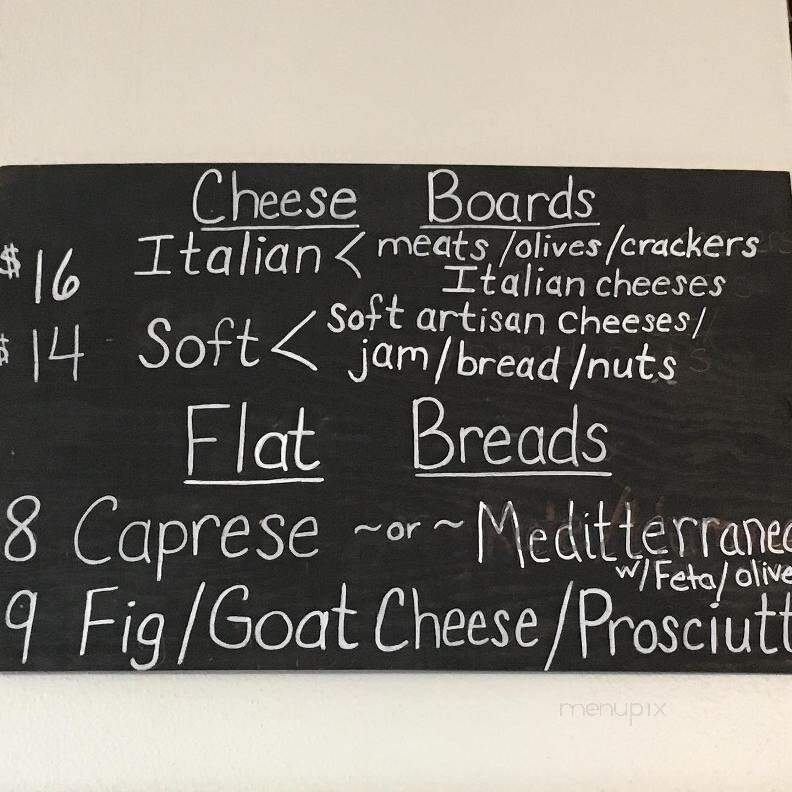 Cheese Boards
$16 Italian < meats/olives/crackers
Italian cheeses
$14 Soft < Soft artisan cheeses/
jam/bread/nuts
Flat Breads
8 Caprese ~or~ Meditterranea
w/Feta/olive
9 Fig/Goat Cheese/Prosciutt
menupix